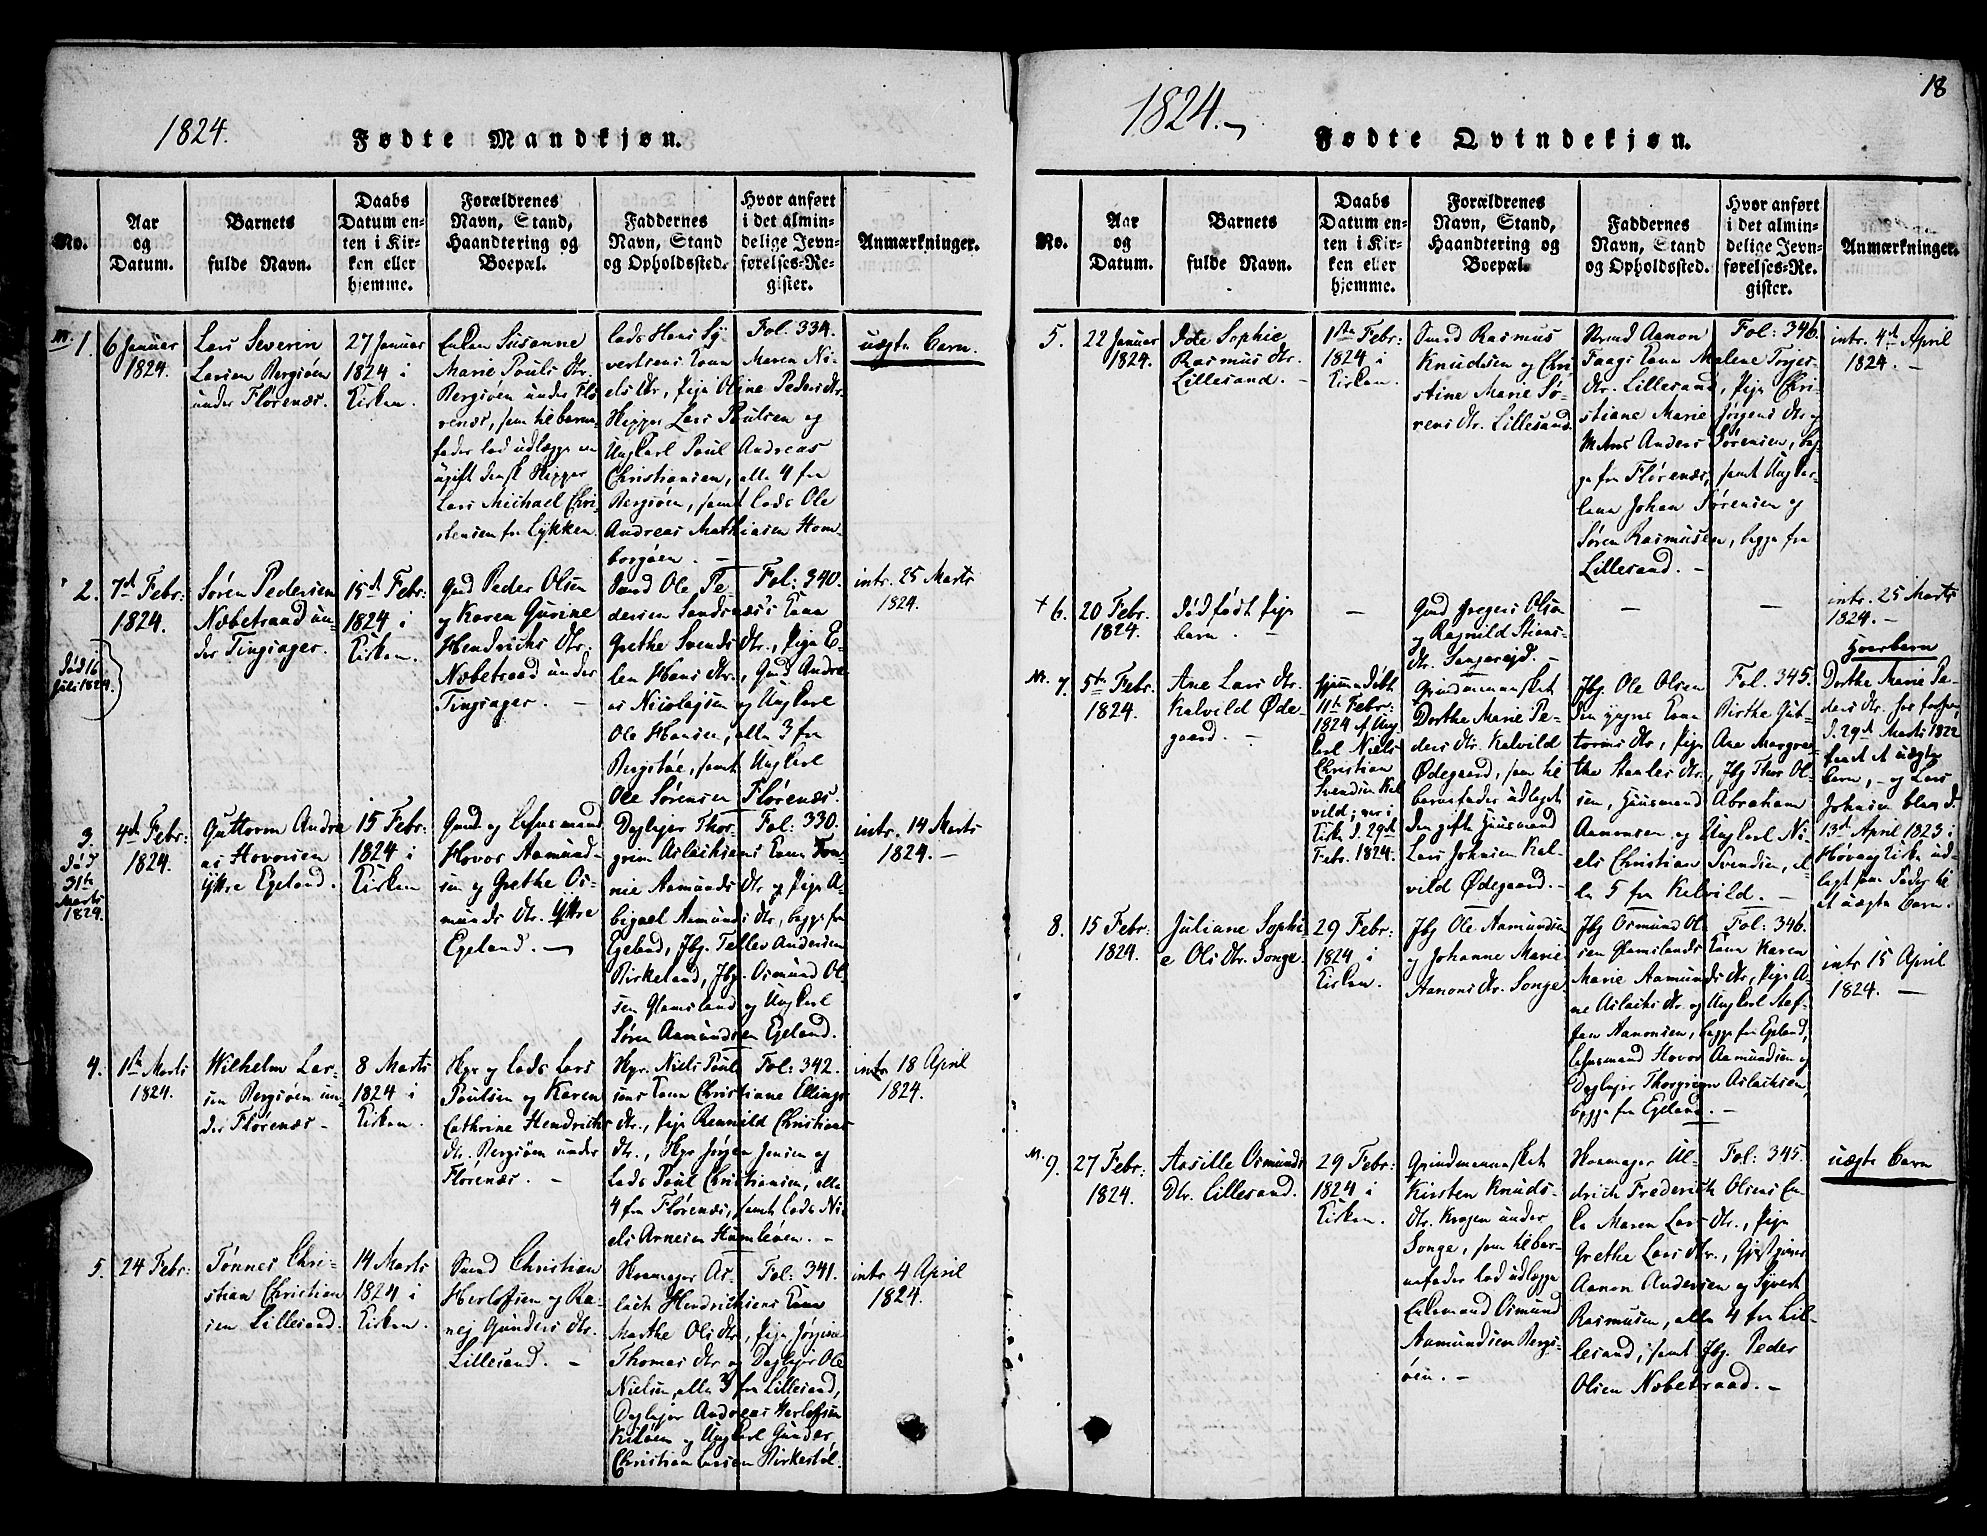 18
1824.
Fødte Mandkjøn.
No.
Aar
og
Datum.
Barnets
fulde Navn.
Daabs
Datum en-
ten i Kir-
ken eller
hjemme.
Forældrenes
Navn, Stand,
Haandtering og
Boepæl.
Faddernes
Navn, Stand
og Opholdssted.
Hvor anført
i det almin-
delige Jevn-
førelses-Re-
gister.
Anmærkninger.
1.
6 Januar
1824.
Lars Severin
Larsen Bergsøen
under Florenæs.
27 Januar
1824 i
Kirken.
Enken Susanne
Marie Pouls Dtr.
Bergsøen under Flo-
renæs, som til barne-
fader lod udlægge en
ugift dansk Skipper
Lars Michael Chri-
stensen fra Lykken
Lods Hans Sy-
vertsens Kone Maren Ni-
els Dtr, Pige Oline Peders Dtr.
Skipper Lars Poulsen og
Ungkarl Poul Andreas
Christiansen, alle 4 fra
Bergsøen, samt Lods Ole
Andreas Mathiasen Hom-
borgøen. –
Fol. 334.
uægte barn.
2.
død 16
Juli 1824.
7d Febr:
1824.
Søren Pedersen
Næbetraad un-
der Tingsager.
15d Febr:
1824 i
Kirken.
Gmd Peder Olsen
og Karen Gurine
Hendrichs Dtr.
Næbetraad under
Tingsager. –
Smd Ole Pe-
dersen Sandsnæs's Kone
Grethe Svends Dtr, Pige E-
len Hans Dtr, Gmd Andre-
as Nicolajsen og Ungkarl
Ole Hansen, alle 3 fra
Bergstøe, samt Ungkarl
Ole Sørensen Florenæs.
Fol: 340.
intr. 25 Marts
1824.
3.
død
31te
Marts
1824.
4d Febr:
1824.
Guttorm Andre-
as Hovorsen
Yttre Egeland.
15 Febr:
1824 i
Kirken
Gmd og Lehnsmand
Hovor Aamund-
sen og Grethe Os-
munds Dtr. Yttre
Egeland. –
Deylejer Thor-
grim Aslachsens Kone Ton-
nie Aamunds Dtr og Pige A-
bigael Aamunds Dtr, begge fra
Egeland, Jbg. Tellev Andersen
Birkeland, Jbg. Osmund Ol-
sen Glamsland og Ungkarl
Søren Aamundsen Egeland.
Fol: 330.
intr. 14 Marts
1824. –
4.
1te Marts
1824.
Wilhelm Lar-
sen Bergsøen un-
der Florenæs –
8 Marts
1824 i
Kirken.
Skpr og Lods Lars
Poulsen og Karen
Cathrine Hendrichs
Dtr. Bergsøen under
Florenæs. –
Skpr. Niels Poul-
sens Kone Christiane Ellings
Dtr., Pige Rennild Christians
Dtr., Skpr Jørgen Jensen og
Lods Poul Christiansen, alle
4 fra Florenæs, samt Lods Ni-
els Arnesen Humleøen. –
Fol: 342.
intr 18 April
1824.
5.
24 Febr:
Tønnes Chri-
stian Christian-
sen Lillesand.
14 Marts
1824 i
Kirken
Smd Christian
Herlofsen og Ra-
nej Gunders Dtr.
Lillesand. –
Skomager As-
lach Hendrichsens Kone
Marthe Ols Dtr, Pige Jørgine
Thomas Dtr og Deylejer Ole
Nielsen, alle 3 fra Lillesand,
Deylejer Andreas Herlofsen
Kiløen og Ungkarl Gunder
Christian Larsen Birkestøl.
Fol: 341.
intr. 4 April
1824.
1824.
Fødte Qvindekjøn.
No.
Aar
og
Datum.
Barnets
fulde Navn.
Daabs
Datum en-
ten i Kir-
ken eller
hjemme.
Forældrenes
Navn, Stand,
Haandtering og
Boepæl.
Faddernes
Navn, Stand
og Opholdssted.
Hvor anført
i det almin-
delige Jevn-
førelses-Re-
gister.
Anmærkninger.
5.
22 Januar
1824.
Ide Sophie
Rasmus Dtr.
Lillesand. –
1ste Febr:
1824 i
Kirken.
Smd Rasmus
Knudsen og Chri-
stine Marie Sø-
rens Dtr. Lillesand
Strmd Aanon
Faags Kone Malene Tryes
Dtr. Lillesand, Pige Chri-
stiane Marie Jørgens Dtr og
Mads Anders Sørensen, beg-
ge fra Florenæs, samt Ungkar-
lene Johan Sørensen og
Søren Rasmusen, begge fra
Lillesand. –
Fol: 346.
intr. 4d April
1824. –
+ 6.
20 Febr.
1824.
Dødfødt Pige-
barn. –
–
Gmd Gregers Olsen
og Ragnild Stians
Dtr. Sangereid. –
–
–
intr. 25 Marts
1824. –
7.
5te Febr.
1824.
Ane Lars Dtr.
Kalvild Øde-
gaard. –
hjemmedøbt
11te Febr:
1824 af Ung-
karl Niels
Christian
Svendsen Kal-
vild; var i
Kirke d. 29d
Febr. 1824.
Grindmennesket
Dorthe Marie Pe-
ders Dtr. Kalvild
Ødegaard, som til
barnefader udlagt
den gifte Huusmand
Lars Johnsen Kal-
vild Ødegaard. –
Jbg. Ole Olsen
den yngres Kone Birthe Gut-
torms Dtr, Pige Ane Margre-
the Staales Dtr, Jbg Thor Ol-
sen, Huusmand Abraham
Aanonsen og Ungkarl Ni-
els Christian Svendsen, al-
le 5 fra Kalvild. –
Fol. 345.
Hoerbarn
Dorthe Marie Pe-
ders Dtr. har forhen
d. 29d Marts 1822
født et uægte
barn, – og Lars
Johnsen blev d.
13d April 1823 i
Høvaag Kirke ud-
lagt som Fader til
et uægte barn.
8.
15 Febr:
1824.
Juliane Sophi-
e Ols Dtr. Songe.
29 Febr:
1824 i
Kirken.
Jbg Ole Aamundsen
og Johanne Marie
Aanons Dtr. Songe
Jbg Osmund Ol-
sen Glamslands Kone Karen
Marie Aamunds Dtr, Pige A-
ne Aslachs Dtr og Ungkarl Stef-
fen Aanonsen, begge fra Egeland,
Lehnsmand Hovor Aamundsen og
Deylejer Thorgrim Aslachsen,
begge fra Egeland. –
Fol: 346.
intr 15 April
1824. –
9.
27 Febr:
1824.
Aasille Osmunds
Dtr. Lillesand.
29 Febr:
1824 i
Kirken.
Grindmennesket
Kirsten Knuds-
Dtr. Krogen under
Songe, som til bar-
nefader lod udlægge
Enkemand Osmund
Aamundsen Bergs-
øen. –
Skomager Ul-
drich Frederich Olsens En-
ke Maren Lars Dtr., Pige
Grethe Lars Dtr., Gjestgiver
Aanon Andersen og Syvert
Rasmusen, alle 4 fra Lil-
lesand, samt Jbg. Peder
Olsen Næbetraad. –
Fol: 345.
uægte barn